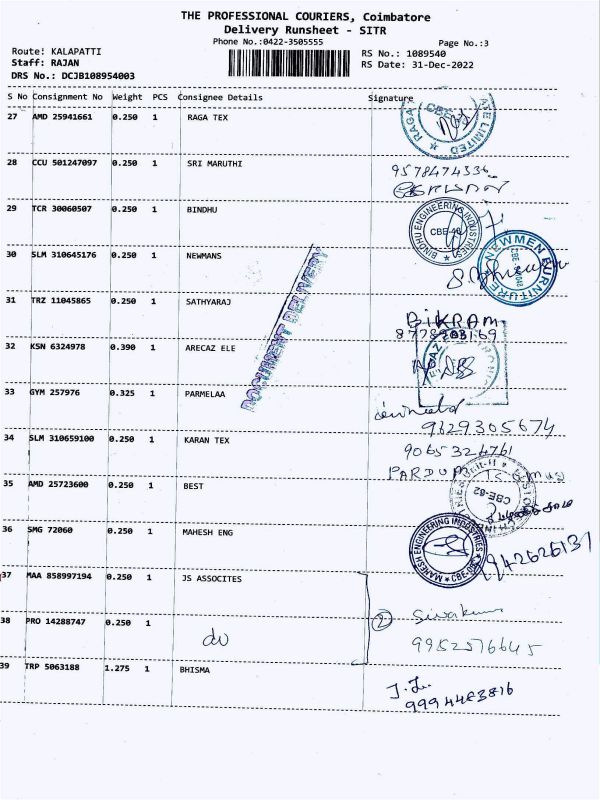 THE PROFESSIONAL COURIERS, Coimbatore
Delivery Runsheet - SITR
Phone No.:0422-3505555
Page No.:3
Route: KALAPATTI
RS No.: 1089540
Staff: RAJAN
RS Date: 31-Dec-2022
DRS No.: DCJB108954003
S No Consignment No Weight PCS Consignee Details Signature
27 AMD 25941661 0.250 1 RAGA TEX
RAGA CBE LIMITED
28 CCU 501247097 0.250 1 SRI MARUTHI
9578474336
29 TCR 30060507 0.250 1 BINDHU
BINDHU ENGINEERING INDUSTRIES CBE-48
30 SLM 310645176 0.250 1 NEWMANS
NEWMEN FURNITURE
31 TRZ 11045865 0.250 1 SATHYARAJ
BIKRAM
DOCUMENT DELIVERY
32 KSN 6324978 0.390 1 ARECAZ ELE
33 GYM 257976 0.325 1 PARMELAA
9629305674
34 SLM 310659100 0.250 1 KARAN TEX
9065324761
35 AMD 25723600 0.250 1 BEST
CBE-62
36 SMG 72060 0.250 1 MAHESH ENG
MAHESH ENGINEERING INDUSTRIES
9942626137
37 MAA 858997194 0.250 1 JS ASSOCITES
2 Sivakumar
38 PRO 14288747 0.250 1
do
9952576645
39 TRP 5063188 1.275 1 BHISMA
9994483816